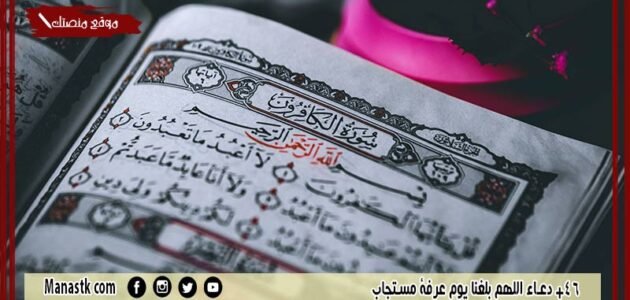 موقع منصتك
سُورَةُ الكَافِرُونَ
بِسْمِ اللَّهِ الرَّحْمَٰنِ الرَّحِيمِ
قُلْ يَٰأَيُّهَا الْكَٰفِرُونَ ۝ لَا أَعْبُدُ مَا تَعْبُدُونَ ۝
مَا أَعْبُدُ ۝ وَلَا أَنَا عَابِدٌ مَّا عَبَدتُّمْ ۝
مَا أَعْبُدُ ۝ لَكُمْ دِينُكُمْ وَلِيَ دِينِ ۝
٤٦+ دعاء اللهم بلغنا يوم عرفة مستجاب
Manastk com